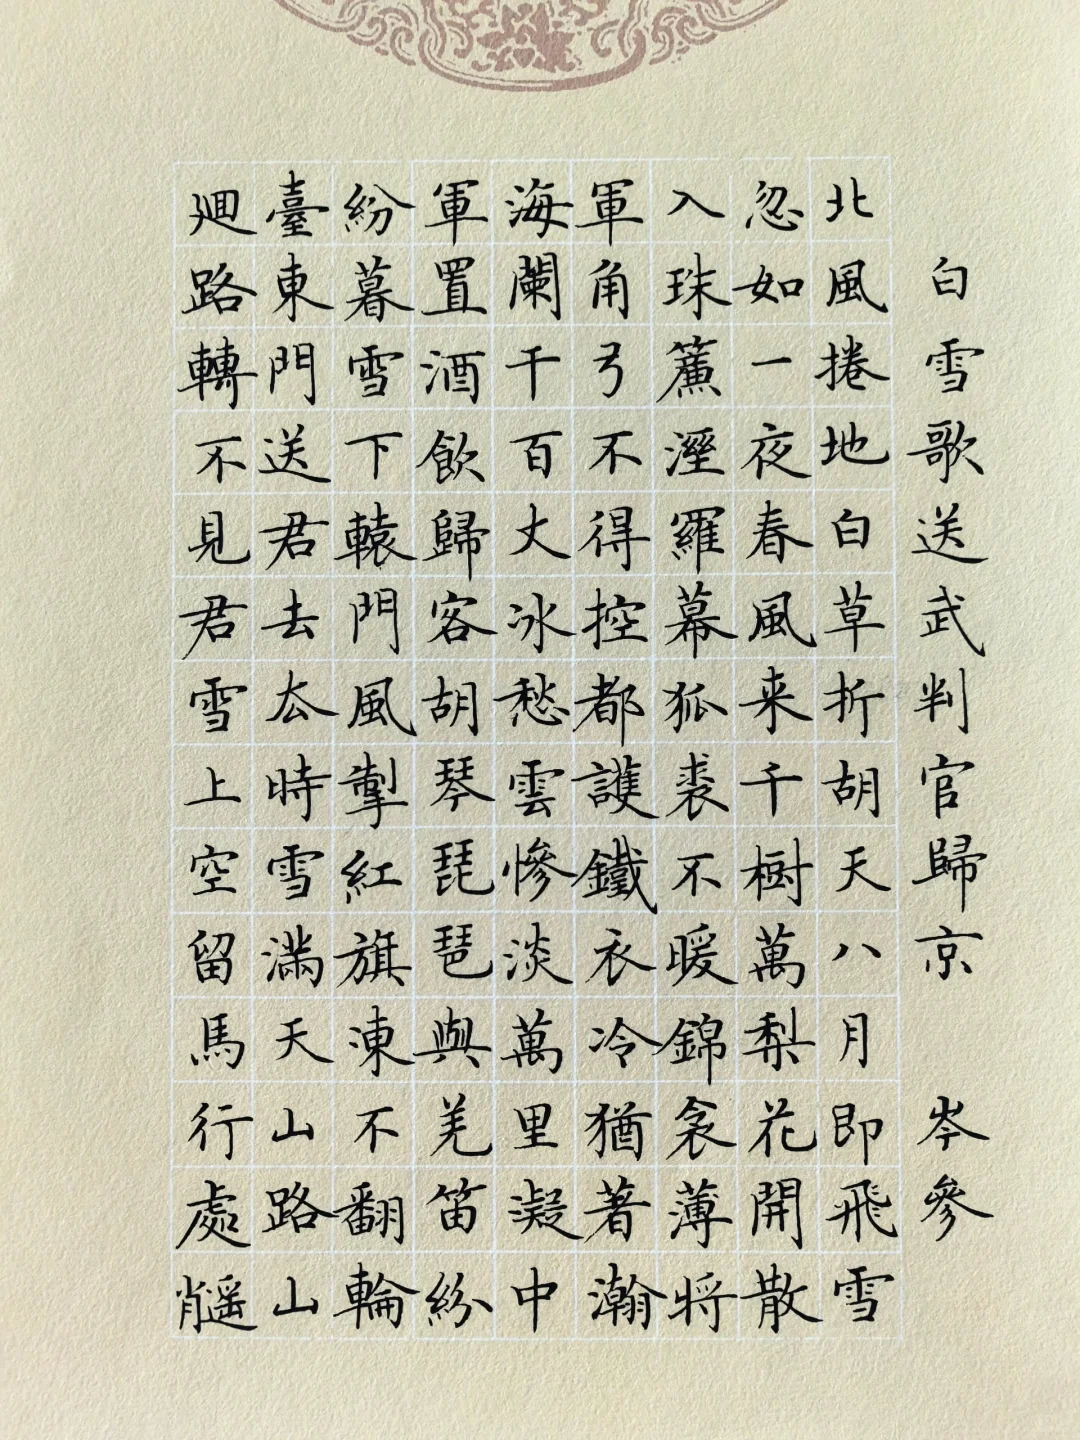 白雪歌送武判官歸京 岑參
北風捲地白草折胡天八月即飛雪
忽如一夜春風来千樹萬梨花開散
入珠簾溼羅幕狐裘不暖錦衾薄將
軍角弓不得控都護鐵衣冷猶著瀚
海闌干百丈冰愁雲慘淡萬里凝中
軍置酒飲歸客胡琴琵琶與羌笛紛
紛暮雪下轅門風掣紅旗凍不翻輪
臺東門送君去厺時雪滿天山路山
廻路轉不見君雪上空留馬行處